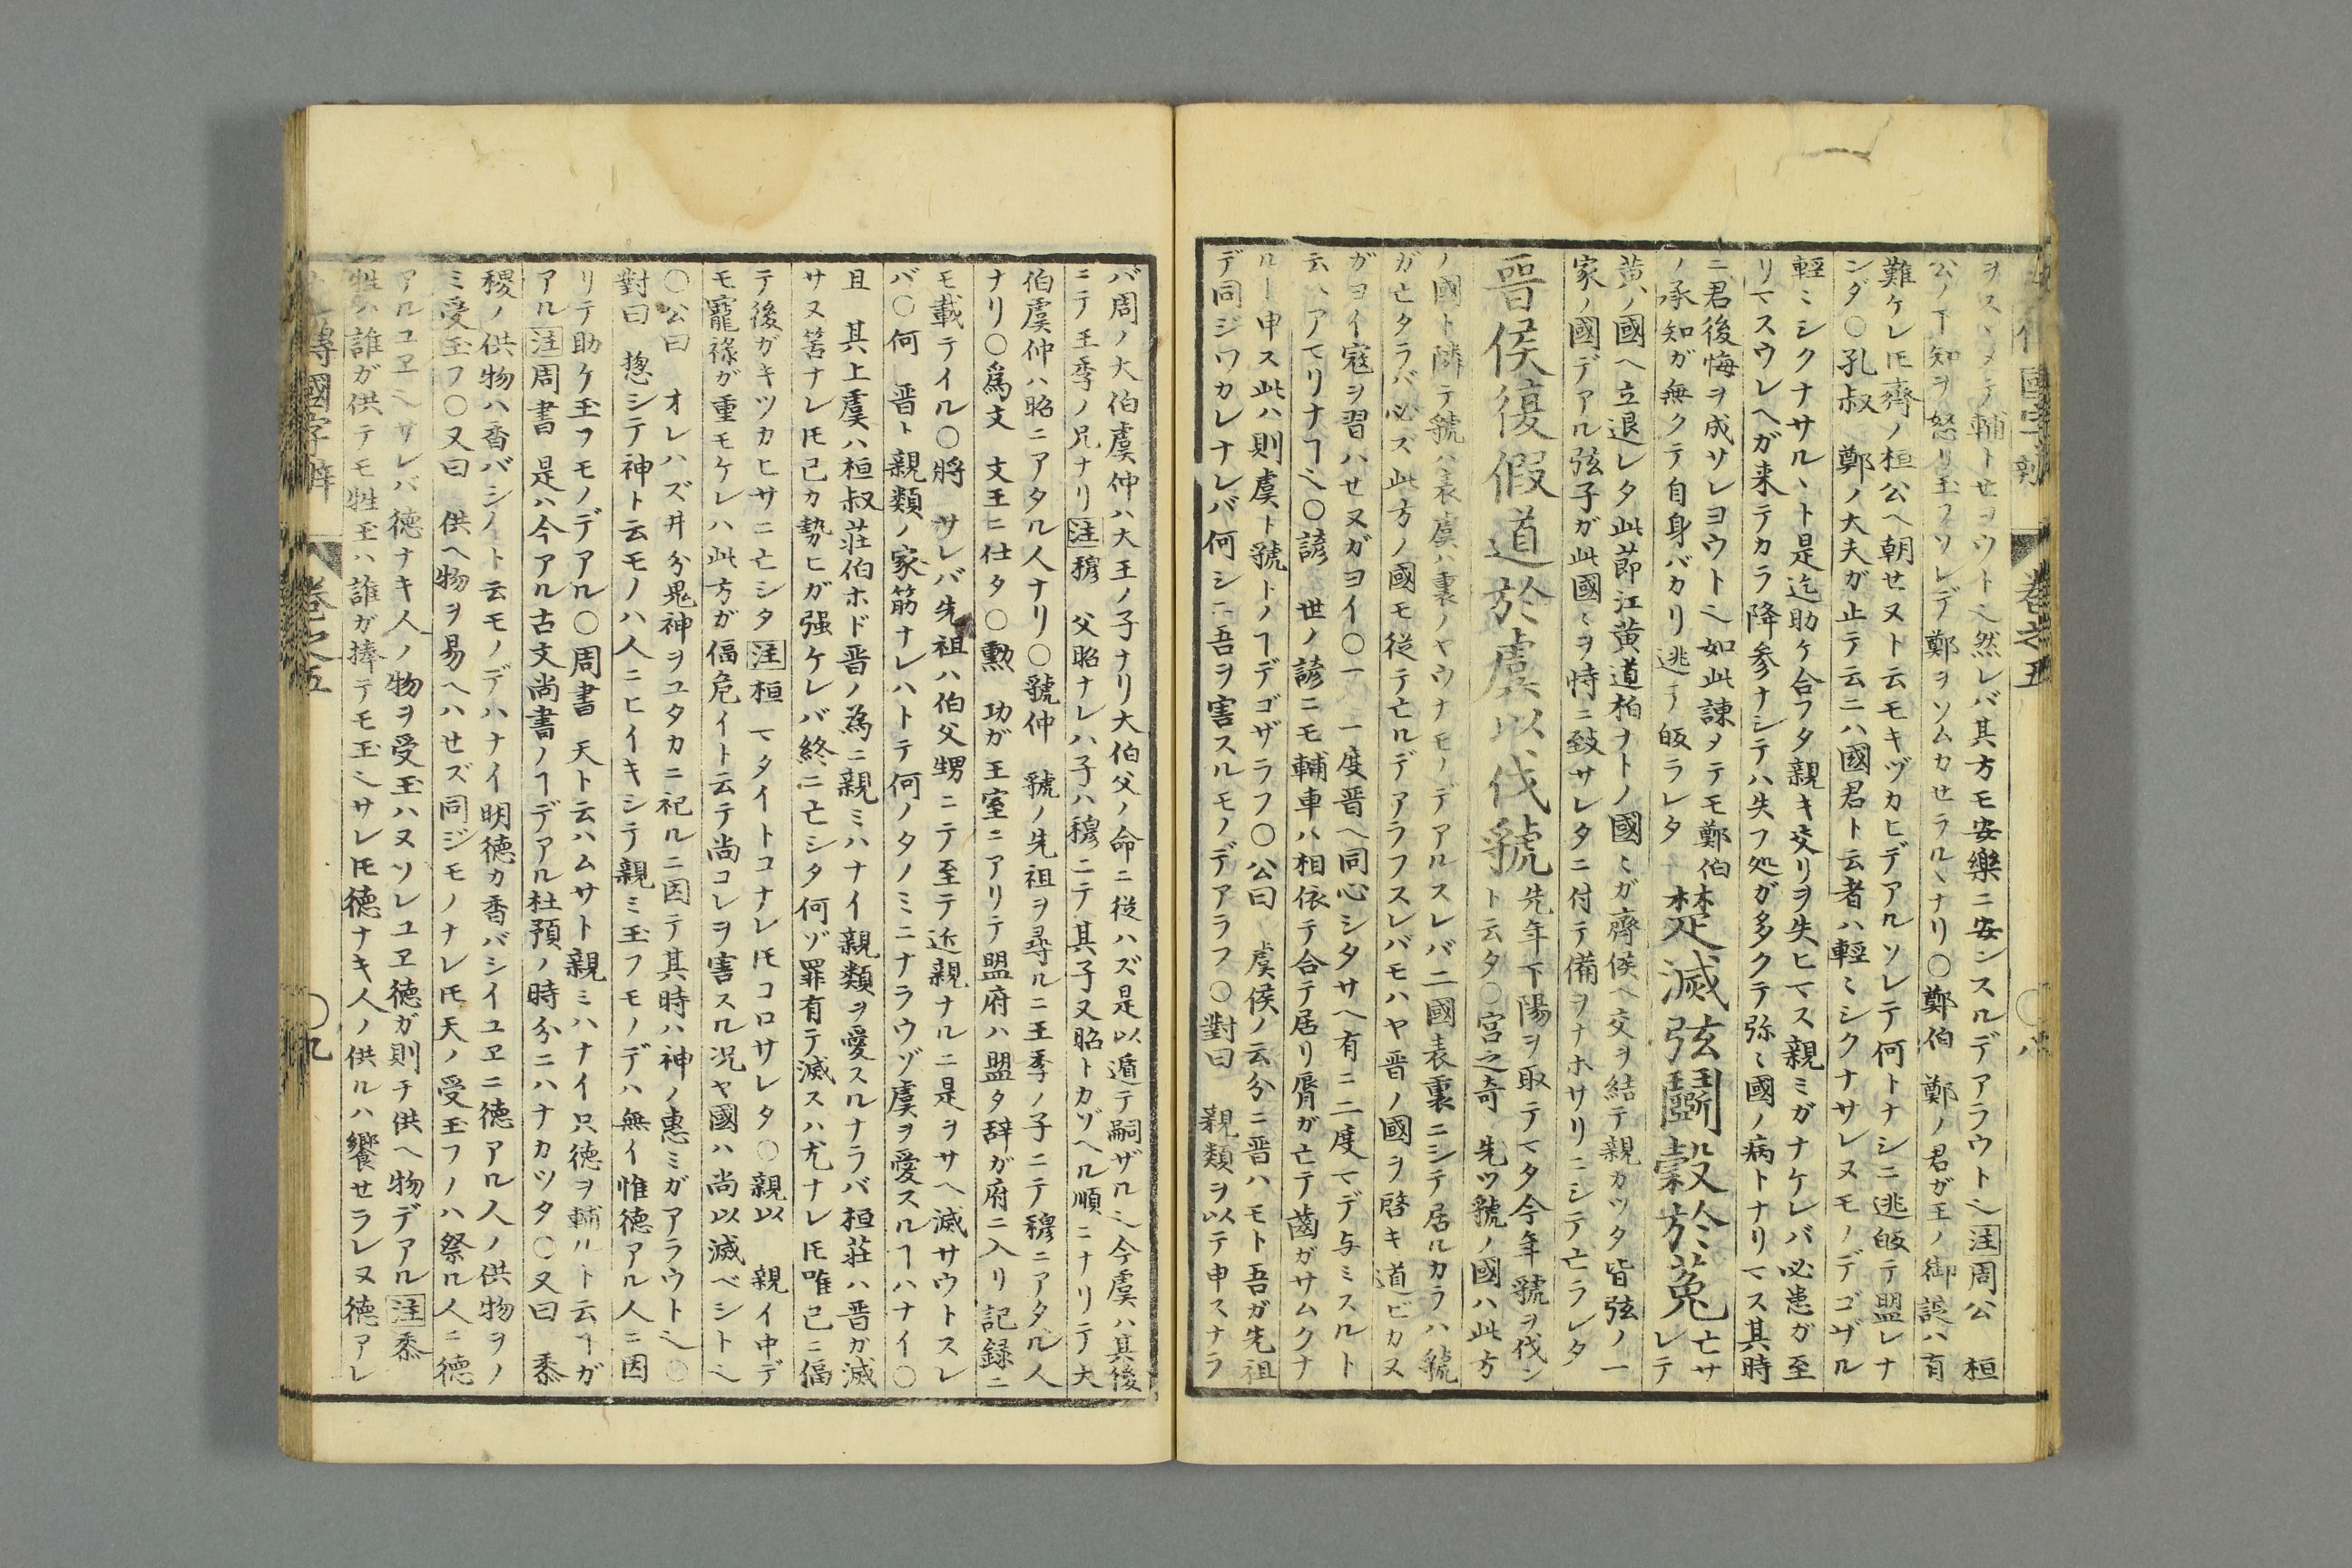 ヲスヽメテ輔トセヨウトヘ然レバ其方モ安樂ニ安ンスルデアラウトヘ注周公　桓
公ノ下知ヲ怒リ玉フソレデ鄭ヲソムカセラルヽナリ○鄭伯　鄭ノ君ガ王ノ御誤ハ有
難ケレ𪜈齊ノ桓公ヘ朝セヌト云モキヅカヒデアルソレテ何トナシニ逃皈テ盟レナ
ンダ○孔叔　鄭ノ大夫ガ止テ云ニハ國君ト云者ハ輕ミシクナサレヌモノデゴザル
輕ミシクナサルヽト是迄助ケ合フタ親キ交リヲ失ヒマス親ミガナケレバ必患ガ至
リマスウレヘガ来テカラ降参ナシテハ失フ処ガ多クテ弥ミ國ノ病トナリマス其時
ニ君後悔ヲ成サレヨウトヘ如此諌メテモ鄭伯
ノ承知ガ無クテ自身バカリ逃テ皈ラレタ
楚滅弦鬭穀於菟
亡サ
レテ
黄ノ國ヘ立退レタ此節江黄道柏ナトノ國ミガ齊侯ヘ交ヲ結テ親カツタ皆弦ノ一
家ノ國デアル弦子ガ此國ミヲ恃ニ致サレタニ付テ備ヲナホサリニシテ亡ラレタ
晋侯復假道於虞以伐虢
先年下陽ヲ取テマタ今年虢ヲ伐ン
ト云タ○宮之奇　先ツ虢ノ國ハ此方
ノ國ト隣テ虢ハ表虞ハ裏ノヤウナモノデアルスレバ二國表裏ニシテ居ルカラハ虢
ガ亡タラバ必ズ此方ノ國モ従テ亡ルデアラフスレバモハヤ晋ノ國ヲ啓キ道ビカヌ
ガヨイ寇ヲ習ハセヌガヨイ○一　一度晋ヘ同心シタサヘ有ニ二度マデ与ミスルト
云ハアマリナヿヘ○諺　世ノ諺ニモ輔車ハ相依テ合テ居リ唇ガ亡テ齒ガサムクナ
ルト申ス此ハ則虞ト虢トノヿデゴザラフ○公曰　虞侯ノ云分ニ晋ハモト吾ガ先祖
デ同ジワカレナレバ何シニ吾ヲ害スルモノデアラフ○對曰　親類ヲ以テ申スナラ
バ周ノ大伯虞仲ハ大王ノ子ナリ大伯父ノ命ニ従ハズ是以遁テ嗣ザルヘ今虞ハ其後
ニテ王季ノ兄ナリ注穆　父昭ナレハ子ハ穆ニテ其子又昭トカゾヘル順ニナリテ大
伯虞仲ハ昭ニアタル人ナリ○虢仲　虢ノ先祖ヲ尋ルニ王季ノ子ニテ穆ニアタル人
ナリ○爲文　文王ニ仕タ○勲　功ガ王室ニアリテ盟府ハ盟タ辞ガ府ニ入リ記録ニ
モ載テイル○將　サレバ先祖ハ伯父甥ニテ至テ近親ナルニ是ヲサヘ滅サウトスレ
バ○何　晋ト親類ノ家筋ナレハトテ何ノタノミニナラウゾ虞ヲ愛スルヿハナイ○
且　其上虞ハ桓叔荘伯ホド晋ノ為ニ親ミハナイ親類ヲ愛スルナラバ桓荘ハ晋ガ滅
サヌ筈ナレ𪜈己カ勢ヒガ强ケレバ終ニ亡シタ何ゾ罪有テ滅スハ尤ナレ𪜈唯己ニ偪
テ後ガキツカヒサニ亡シタ注桓　マタイトコナレ𪜈コロサレタ○親以　親イ中デ
モ寵祿ガ重モケレハ此方ガ偪危イト云テ尚コレヲ害スル况ヤ國ハ尚以滅ベシトヘ
○公曰　オレハズ井分鬼神ヲユタカニ祀ルニ因テ其時ハ神ノ惠ミガアラウトヘ○
對曰　惣シテ神ト云モノハ人ニヒイキシテ親ミ玉フモノデハ無イ惟德アル人ニ因
リテ助ケ玉フモノデアル○周書　天ト云ハムサト親ミハナイ只德ヲ輔ルト云ヿガ
アル注周書　是ハ今アル古文尚書ノヿデアル杜預ノ時分ニハナカツタ○又曰　黍
稷ノ供物ハ香バシイト云モノデハナイ明德カ香バシイユヱニ德アル人ノ供物ヲノ
ミ受玉フ○又曰　供ヘ物ヲ易ヘハせズ同ジモノナレ𪜈天ノ受玉フノハ祭ル人ニ德
アルユヱヘサレバ德ナキ人ノ物ヲ受玉ハヌソレユヱ德ガ則チ供ヘ物デアル注黍
牲ハ誰ガ供テモ牲玉ハ誰ガ捧テモ玉ヘサレ𪜈德ナキ人ノ供ルハ饗セラレヌ德アレ
傳國字解　卷之五　○九
國字觧　卷之五　○八